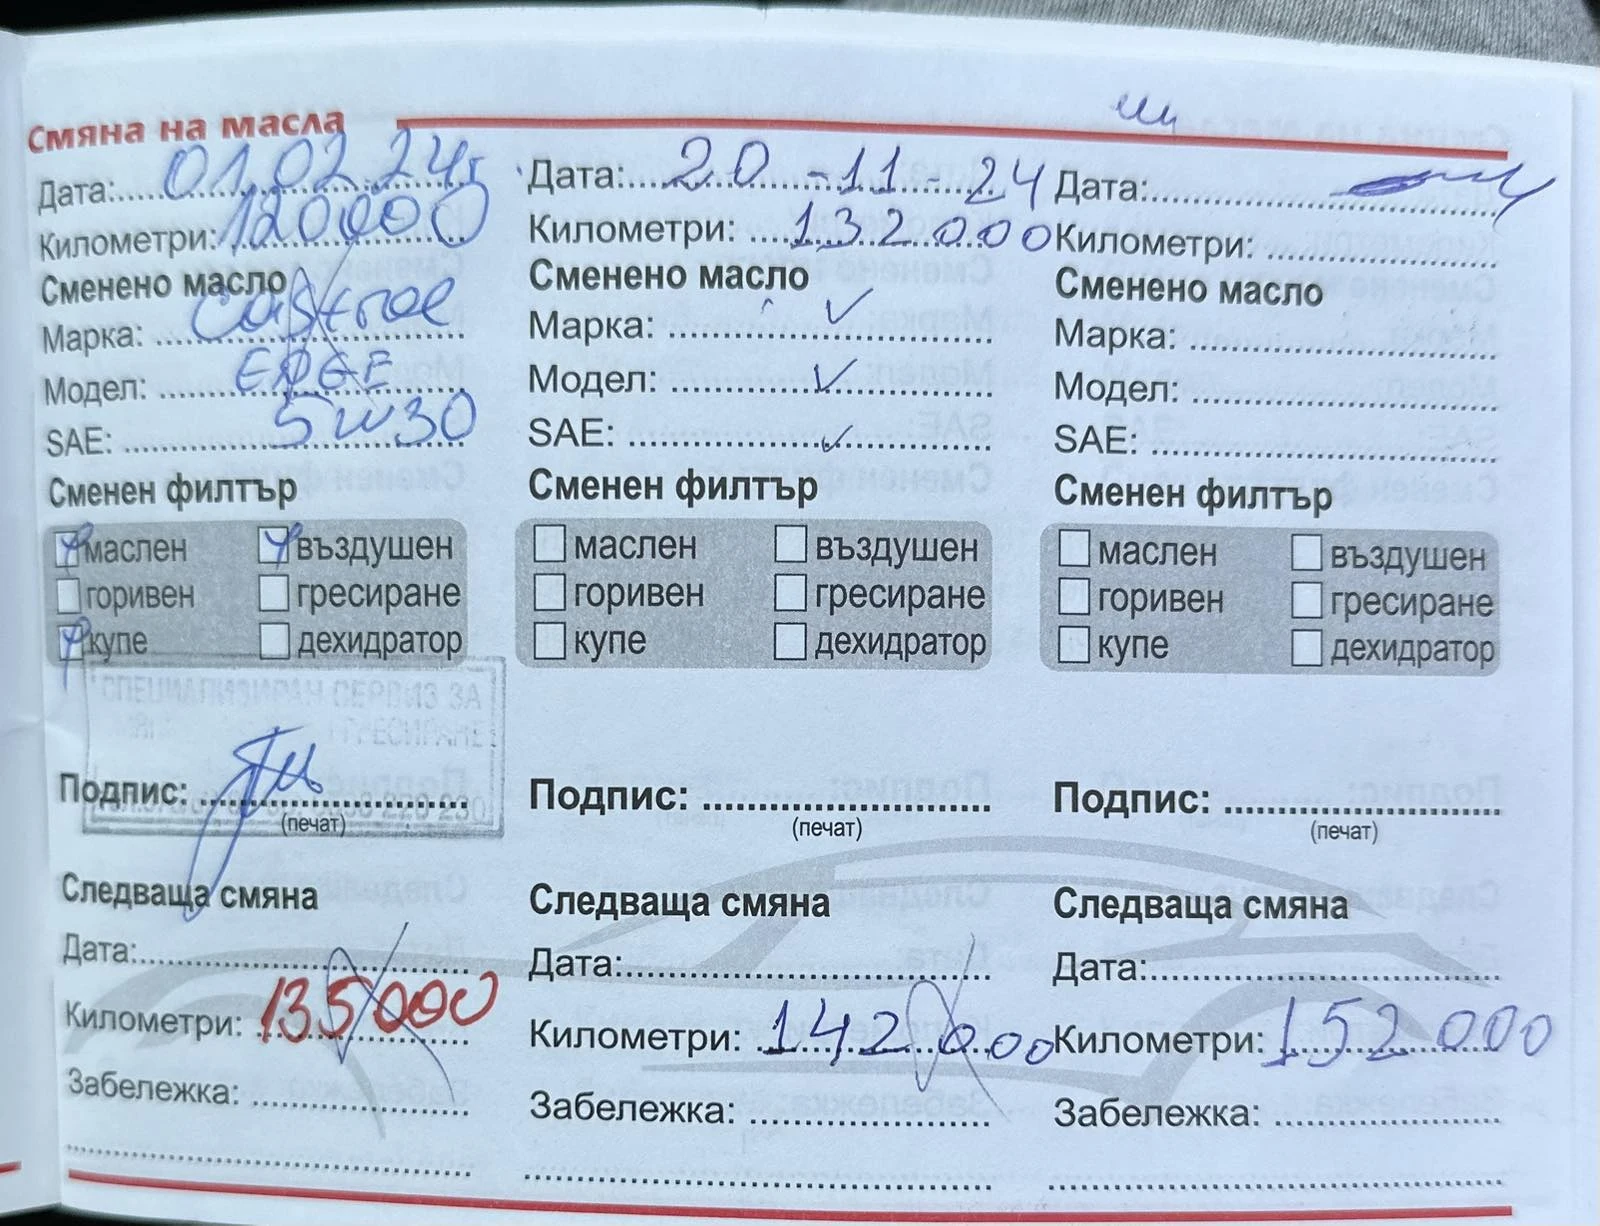 Смяна на масла
Дата: 01.02.24г
Километри: 120000
Сменено масло
Марка: Castrol
Модел: EDGE
SAE: 5W30
Сменен филтър
маслен въздушен
горивен гресиране
купе дехидратор
СПЕЦИАЛИЗИРАН СЕРВИЗ ЗА
ГРЕСИРАНЕ
Подпис:
(печат)
Следваща смяна
Дата:
Километри: 135000
Забележка:
Дата: 20-11-24
Километри: 132000
Сменено масло
Марка: ✓
Модел: ✓
SAE: ✓
Сменен филтър
маслен въздушен
горивен гресиране
купе дехидратор
Подпис:
(печат)
Следваща смяна
Дата:
Километри: 142000
Забележка:
Дата:
Километри:
Сменено масло
Марка:
Модел:
SAE:
Сменен филтър
маслен въздушен
горивен гресиране
купе дехидратор
Подпис:
(печат)
Следваща смяна
Дата:
Километри: 152000
Забележка: